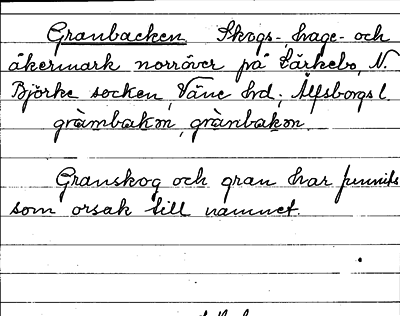 Granbacken Skogs-, hage- och
åkermark norröver på Lärkebo, N.
Björke socken, Väne hd, Älfsborgs l.
gràmbakən, grànbakən.
Granskog och gran har funnits
som orsak till namnet.